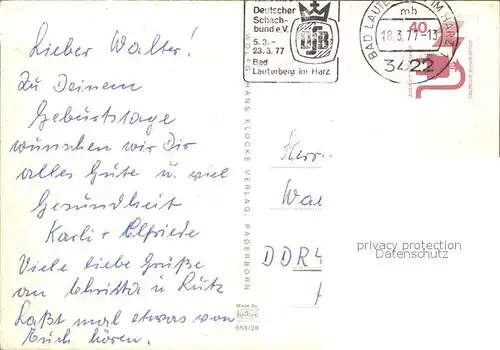 Deutscher
Schach-
bund e.V.
5.3.-
23.3.77
Bad
Lauterberg im Harz
BAD LAUTERBERG IM HARZ
mh
18.3.77-13
3422
40
DEUTSCHE BUNDESPOST
Lieber Walter!
Zu Deinem
Geburtstage
wünschen wir Dir
alles Gute u. viel
Gesundheit
Karli + Elfriede
Viele liebe Grüße
an Christa u Lutz
Laßt mal etwas von
Euch hören.
HANS KLOCKE VERLAG, PADERBORN
Made by
953/28
Herr
Wa
DDR 4
privacy protection
Datenschutz